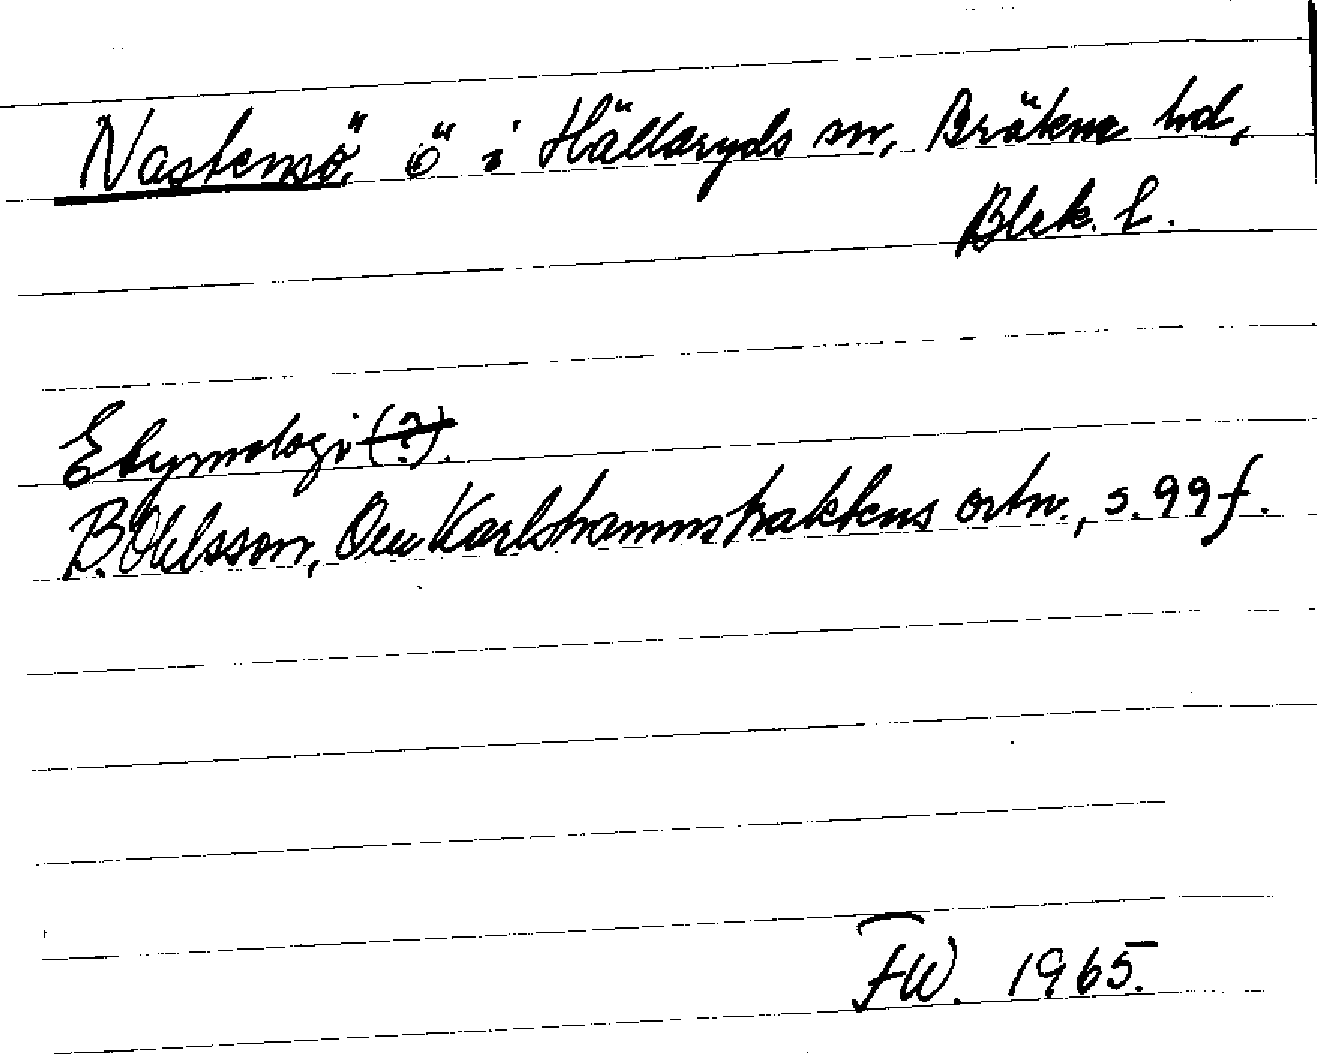 Nastensö, ö i Hällaryds sn, Bräkne hd,
Blek. l.
Etymologi (?).
B. Ohlsson, Om Karlshamnstraktens ortn., s. 99 f.
FW. 1965.